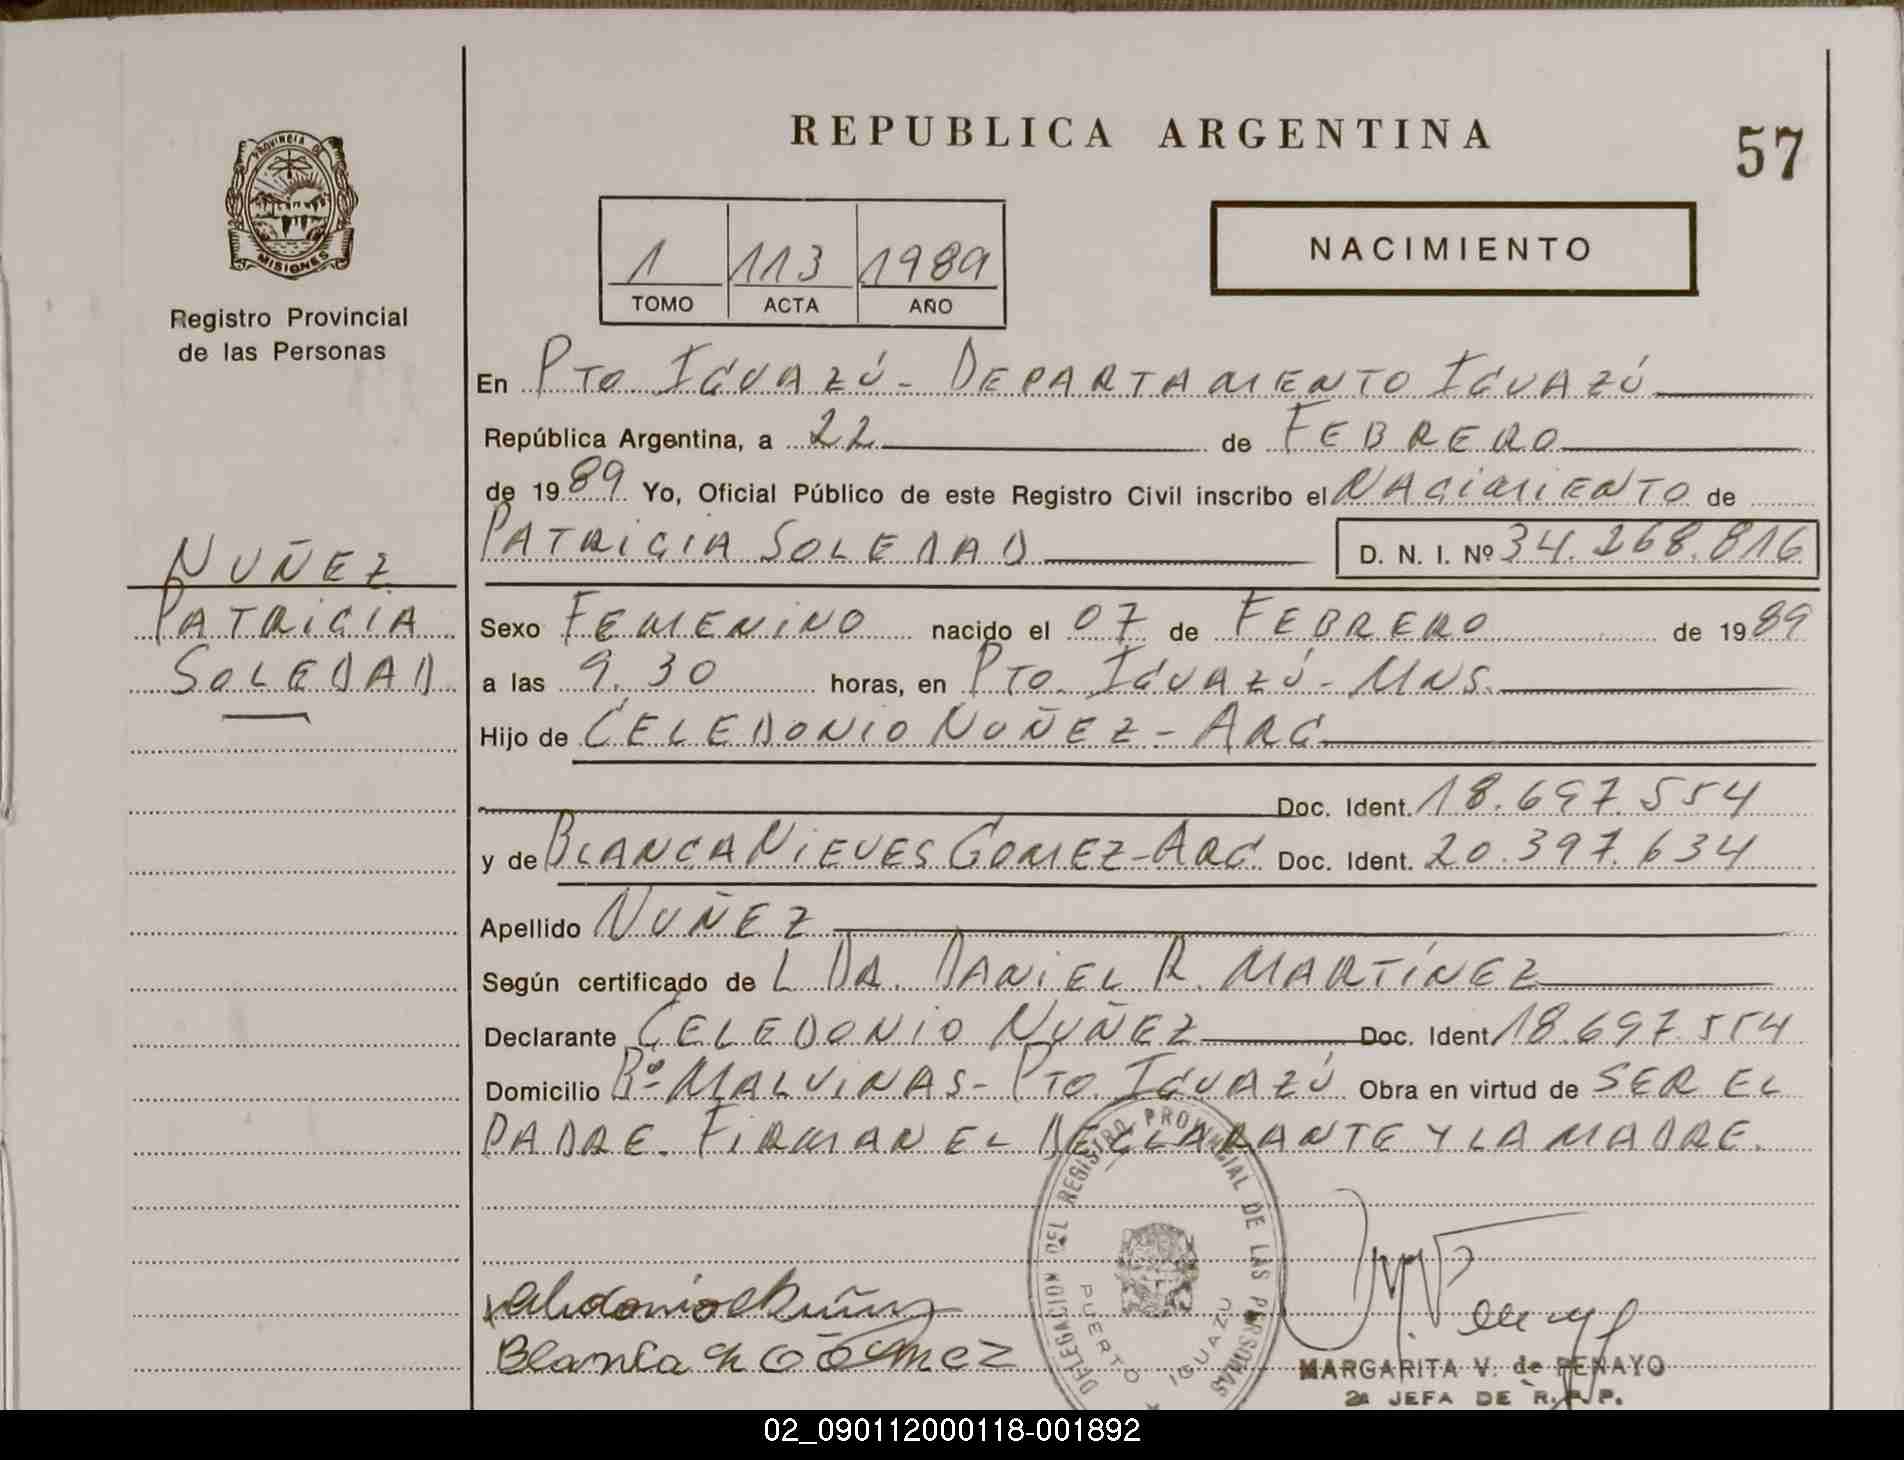 REPUBLICA ARGENTINA
57
PROVINCIA DE
MISIONES
Registro Provincial
de las Personas
1 113 1989
TOMO ACTA AÑO
NACIMIENTO
En PTO IGUAZÚ - DEPARTAMENTO IGUAZÚ
República Argentina, a 22 de FEBRERO
de 1989 Yo, Oficial Público de este Registro Civil inscribo el NACIMIENTO de
PATRICIA SOLEDAD D. N. I. Nº 34.268.816
NUÑEZ
PATRICIA
SOLEDAD
Sexo FEMENINO nacido el 07 de FEBRERO de 1989
a las 9.30 horas, en PTO. IGUAZÚ - MNS.
Hijo de CELEDONIO NUÑEZ - ARG
Doc. Ident. 18.697.554
y de BLANCA NIEVES GOMEZ - ARG. Doc. Ident. 20.397.634
Apellido NUÑEZ
Según certificado de L DR. DANIEL R. MARTÍNEZ
Declarante CELEDONIO NUÑEZ Doc. Ident 18.697.554
Domicilio Bº MALVINAS - PTO. IGUAZÚ Obra en virtud de SER EL
PADRE. FIRMAN EL DECLARANTE Y LA MADRE.
DELEGACION DEL REGISTRO PROVINCIAL DE LAS PERSONAS
PUERTO IGUAZU
Celedonio Nuñez
Blanca N Gómez
MARGARITA V. de PENAYO
2a JEFA DE R.P.P.
02_090112000118-001892